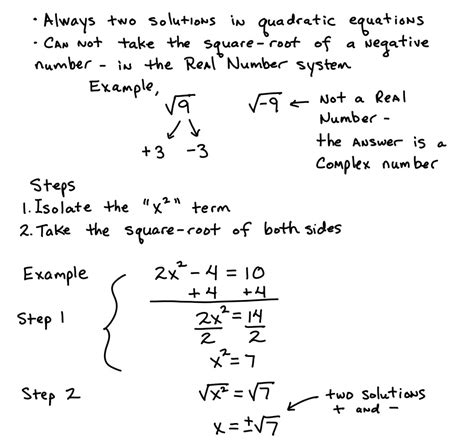 • Always two solutions in quadratic equations
• Can not take the square-root of a negative
number - in the Real Number system
Example,
√9
+3 -3
√-9 ← Not a Real
Number -
the Answer is a
Complex number
Steps
1. Isolate the "x²" term
2. Take the square-root of both sides
Example
2x² - 4 = 10
+ 4 +4
Step 1
2x² = 14
2 2
x² = 7
Step 2
√x² = √7
x = ±√7
two solutions
+ and -